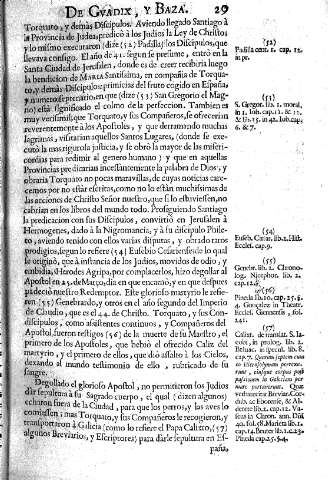 DE GVADIX, Y BAZA. 29
Torquato, y demàs Discipulos. Aviendo llegado Santiago à
la Provincia de Judea, predicò à los Judios la Ley de Christo
y lo mismo executaron (dize (52) Padilla) los Discipulos, que
llevava consigo. El año de 41. segun se presume, entrò en la
Santa Ciudad de Jerusalen, donde es de creer recibiria luego
la bendicion de MARIA Santissima, en compañia de Torqua-
to, y demàs Discipulos primicias del fruto cogido en España,
y numero septenario, en que (dize (53) San Gregorio el Mag-
no) està significado el colmo de la perfeccion. Tambien es
muy verisimil, que Torquato, y sus Compañeros, se ofrecerian
reverentemente à los Apostoles, y que derramando muchas
lagrimas, visitarian aquellos Santos Lugares, (donde se exe-
cutò la mas rigurosa justicia, y se obrò la mayor de las miseri-
cordias para redimir al genero humano) y que en aquellas
Provincias predicarian incessantemente la palabra de Dios, y
obraria Torquato no pocas maravillas, de cuyas noticias care-
cemos por no estàr escritas, como no lo estàn muchissimas de
las acciones de Christo Señor nuestro, que si lo estuviessen, no
cabrian en los libros del mundo todo. Prosiguiendo Santiago
la predicacion con sus Discipulos, convirtiò en Jerusalen à
Hermogenes, dado à la Nigromancia, y à su discipulo Phile-
to, aviendo tenido con ellos varias disputas, y obrado raros
prodigios, segun lo refiere (54) Eusebio Cesariense: de lo qual
se originò, que à instancia de los Judios, movidos de odio, y
embidia, Herodes Agripa, por complacerlos, hizo degollar al
Apostol en 25. de Março, dia en que encarnò, y en que despues
padeciò nuestro Redemptor. Este glorioso martyrio le refie-
ren (55) Genebrardo, y otros en el año segundo del Imperio
de Claudio, que es el 44. de Christo. Torquato, y sus Con-
discipulos, como assistentes continuos, y Compañeros del
Apostol, fueron testigos (56) de la muerte de su Maestro, el
primero de los Apostoles, que bebiò el ofrecido Caliz del
martyrio, y el primero de ellos, que diò assalto à los Cielos,
dexando al mundo testimonio de ello, rubricado de su
sangre.
Degollado el glorioso Apostol, no permitieron los Judios
dàr sepultura à su Sagrado cuerpo, el qual (dizen algunos)
echaron fuera de la Ciudad, para que los perros, y las aves lo
comiessen; mas Torquato, y sus Compañeros le recogieron, y
transportaron à Galicia (como lo refiere el Papa Calixto, (57)
algunos Breviarios, y Escriptores) para dàrle sepultura en Es-
paña,
(52)
Padilla cent. 1. cap. 13.
in pr.
(53)
S. Gregor. lib. 1. moral.
in 1. Iob. cap. 1. & 11.
& lib. 35. in 42. Iob. cap.
6. & 7.
(54)
Euseb. Cæsar. lib. 2. Hist.
Eccles. cap. 9.
(55)
Genebr. lib. 2. Chrono-
log. Nicephor. lib. 2.
cap.
(56)
Pineda lib. 10. cap. 25. §.
4. Gongora in Theatr.
Eccles. Giennensis, fol.
241.
(57)